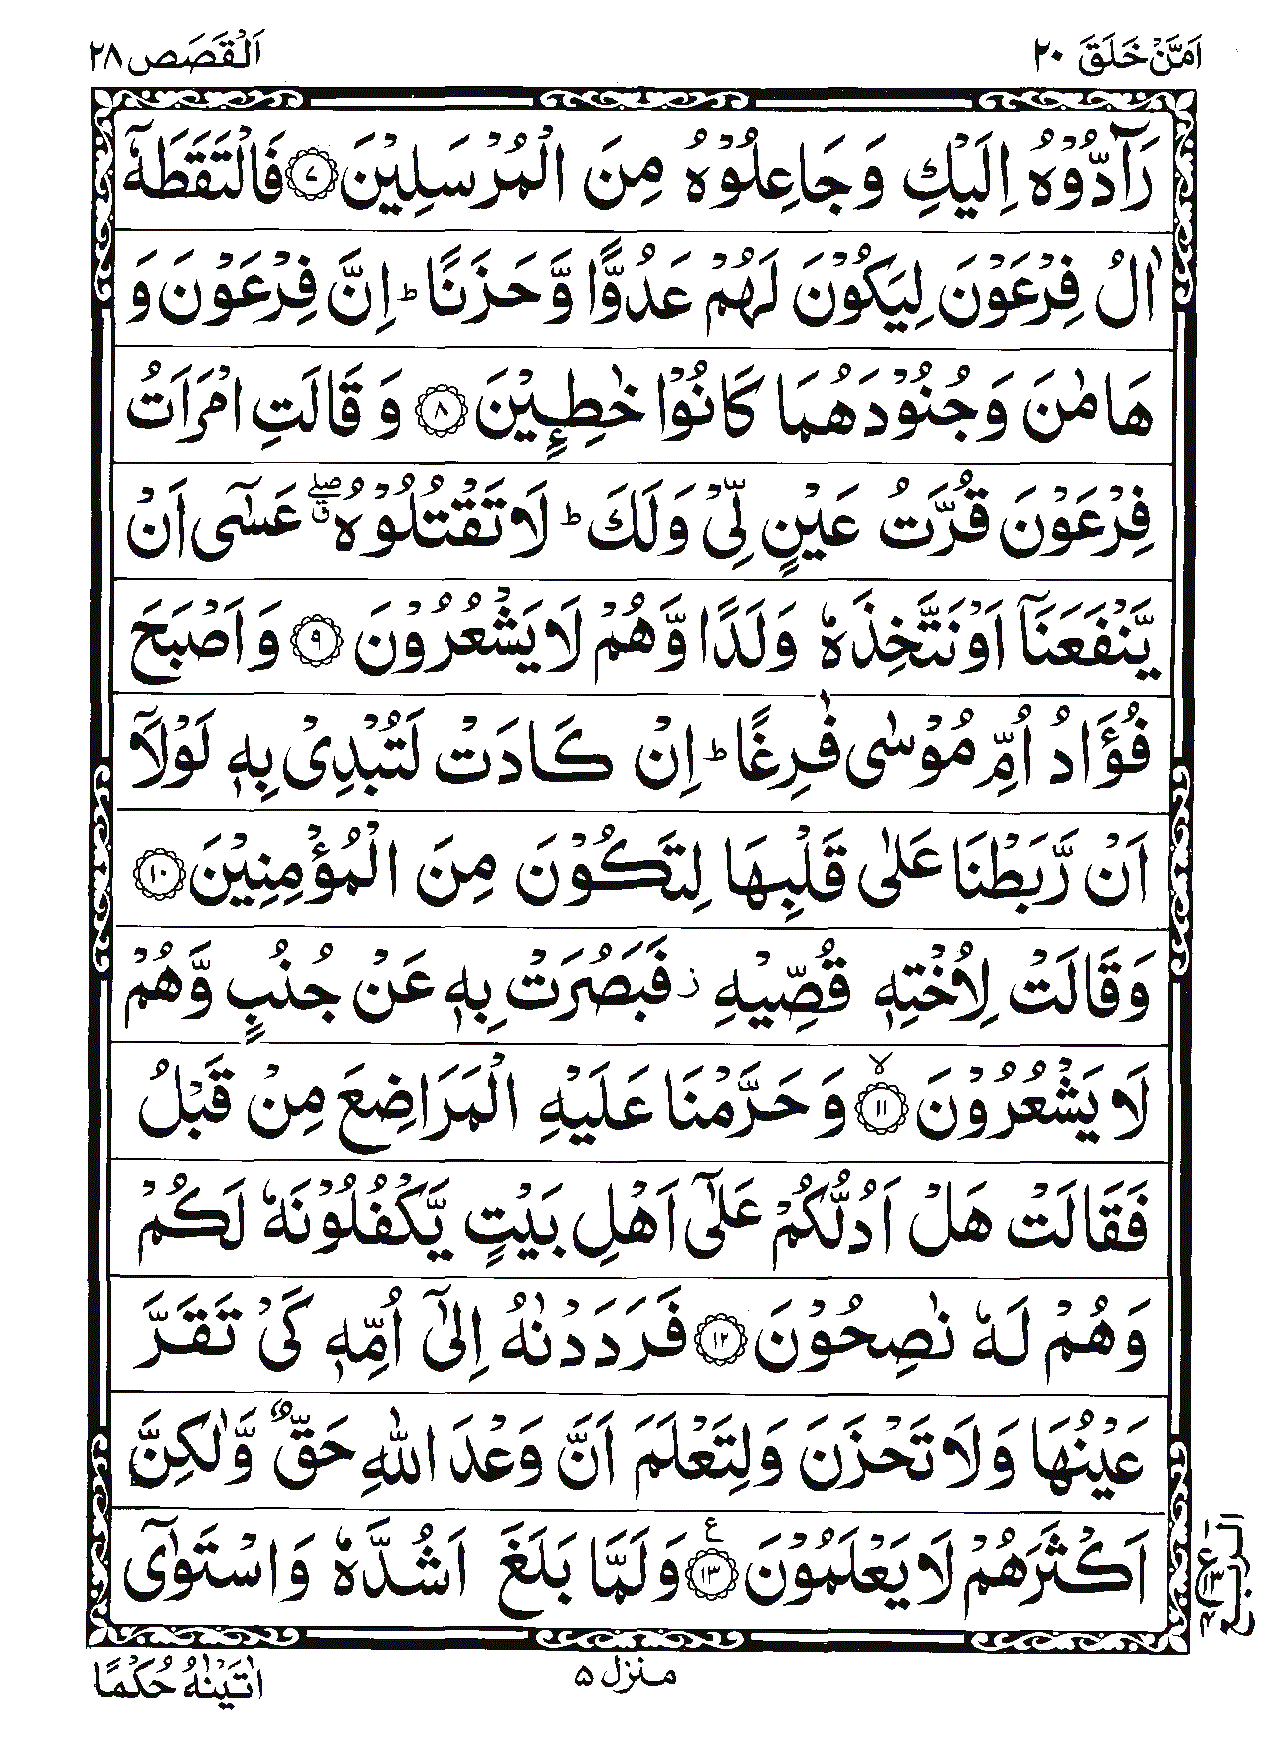 اَمَّنْ خَلَقَ ۲۰
اَلْقَصَص ۲۸
رَآدُّوْهُ اِلَيْكِ وَجَاعِلُوْهُ مِنَ الْمُرْسَلِيْنَ ۝۷ فَالْتَقَطَهٗۤ
اٰلُ فِرْعَوْنَ لِيَكُوْنَ لَهُمْ عَدُوًّا وَّحَزَنًا ؕ اِنَّ فِرْعَوْنَ وَ
هَامٰنَ وَجُنُوْدَهُمَا كَانُوْا خٰطِـِٕيْنَ ۝۸ وَقَالَتِ امْرَاَتُ
فِرْعَوْنَ قُرَّتُ عَيْنٍ لِّيْ وَلَكَ ؕ لَا تَقْتُلُوْهُ ۖۗ عَسٰۤى اَنْ
يَّنْفَعَنَاۤ اَوْ نَتَّخِذَهٗ وَلَدًا وَّهُمْ لَا يَشْعُرُوْنَ ۝۹ وَاَصْبَحَ
فُؤَادُ اُمِّ مُوْسٰى فٰرِغًا ؕ اِنْ كَادَتْ لَتُبْدِيْ بِهٖ لَوْلَاۤ
اَنْ رَّبَطْنَا عَلٰى قَلْبِهَا لِتَكُوْنَ مِنَ الْمُؤْمِنِيْنَ ۝۱۰
وَقَالَتْ لِاُخْتِهٖ قُصِّيْهِ ز فَبَصُرَتْ بِهٖ عَنْ جُنُبٍ وَّهُمْ
لَا يَشْعُرُوْنَ ۝۱۱ۙ وَحَرَّمْنَا عَلَيْهِ الْمَرَاضِعَ مِنْ قَبْلُ
فَقَالَتْ هَلْ اَدُلُّكُمْ عَلٰۤى اَهْلِ بَيْتٍ يَّكْفُلُوْنَهٗ لَكُمْ
وَهُمْ لَهٗ نٰصِحُوْنَ ۝۱۲ فَرَدَدْنٰهُ اِلٰۤى اُمِّهٖ كَيْ تَقَرَّ
عَيْنُهَا وَلَا تَحْزَنَ وَلِتَعْلَمَ اَنَّ وَعْدَ اللّٰهِ حَقٌّ وَّلٰكِنَّ
اَكْثَرَهُمْ لَا يَعْلَمُوْنَ ۝۱۳ ع وَلَمَّا بَلَغَ اَشُدَّهٗ وَاسْتَوٰۤى
الربع
ع ۱۳
منزل ۵
اٰتَيْنٰهُ حُكْمًا